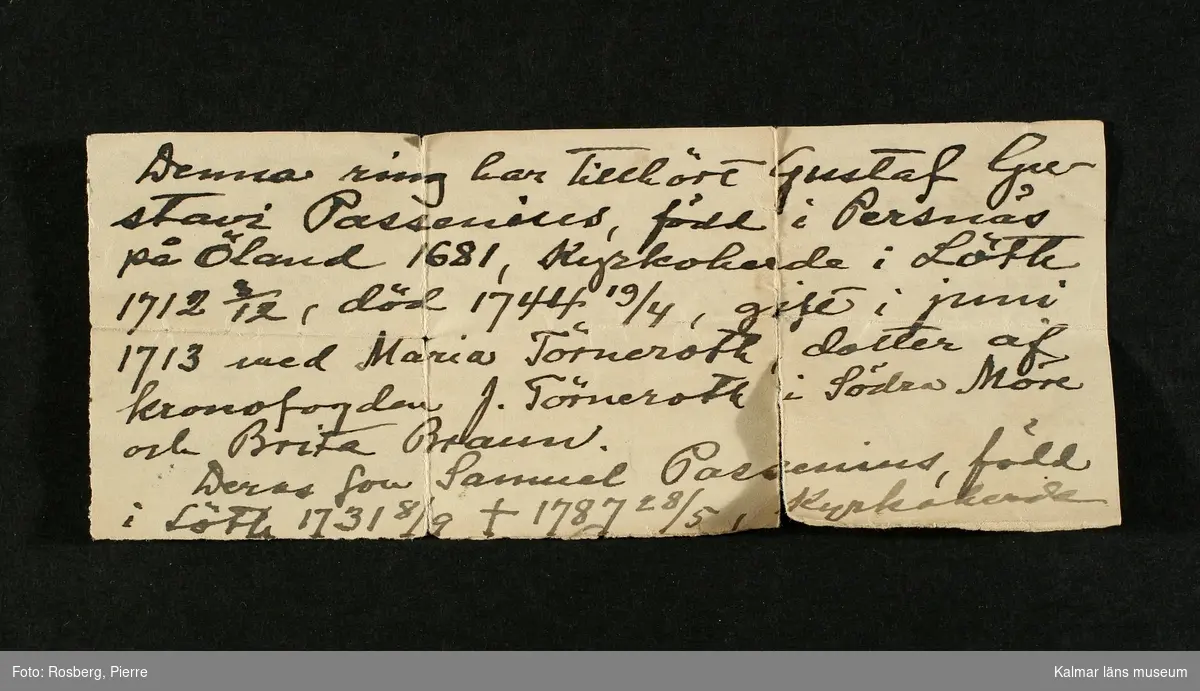 Denna ring har tillhört Gustaf Gu-
stavi Passenius, född i Persnäs
på Öland 1681, Kyrkoherde i Löth
1712 3/12, död 1744 19/4, gift i juni
1713 med Maria Törneroth, dotter af
kronofogden J. Törneroth i Södra Möre
och Brita Braun.
Deras son Samuel Passenius, född
i Löth 1731 8/9 † 1787 28/5, Kyrkoherde
Foto: Rosberg, Pierre
Kalmar läns museum